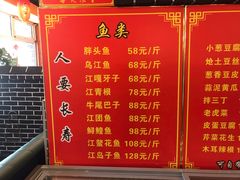 鱼类
人要长寿
胖头鱼 58元/斤
乌江鱼 68元/斤
江嘎牙子 68元/斤
江青根 78元/斤
牛尾巴子 88元/斤
江团鱼 88元/斤
鲟鳇鱼 98元/斤
江鳌花鱼 108元/斤
江岛子鱼 128元/斤
小葱豆腐
炝土豆丝
葱香豆皮
蒜泥黄瓜
拌三丁
老虎菜
皮蛋豆腐
芹菜花生
木耳辣根